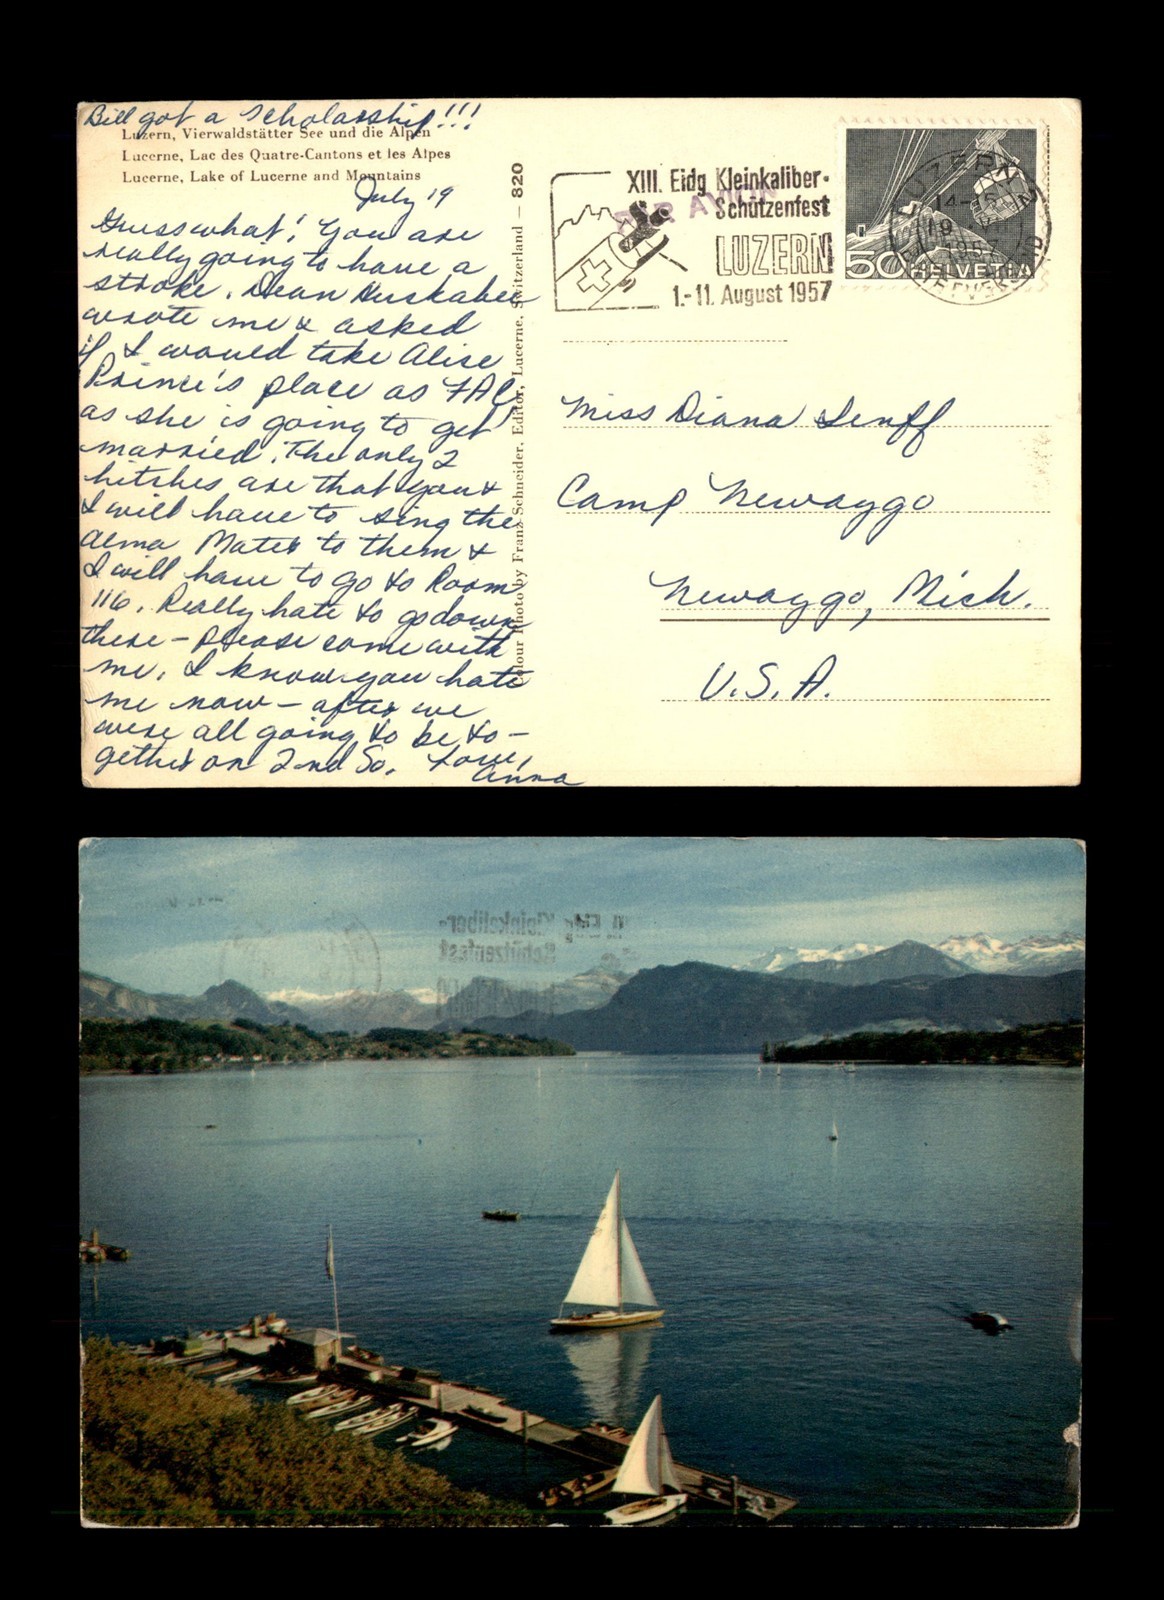 Bill got a scholarship!!!
Luzern, Vierwaldstätter See und die Alpen
Lucerne, Lac des Quatre-Cantons et les Alpes
Lucerne, Lake of Lucerne and Mountains
July 19
Guess what! You are
really going to have a
stroke. Dean
wrote me & asked
if I would take Alise
Prince's place as FAC
as she is going to get
married. The only 2
hitches are that you &
I will have to sing the
Alma Mater to them &
I will have to go to Room
116. Really hate to go down
there - please come with
me. I know you hate
me now - after we
were all going to be to-
gether on 2nd So. Love,
Anna
Colour Photo by Franz Schneider. Editor, Lucerne. Switzerland — 820
XIII. Eidg Kleinkaliber-
Schützenfest
LUZERN
1.-11. August 1957
PAR AVION
LUZERN
14-15
19
1957
50 HELVETIA
Miss Diana Senff
Camp Newaygo
Newaygo, Mich.
U.S.A.